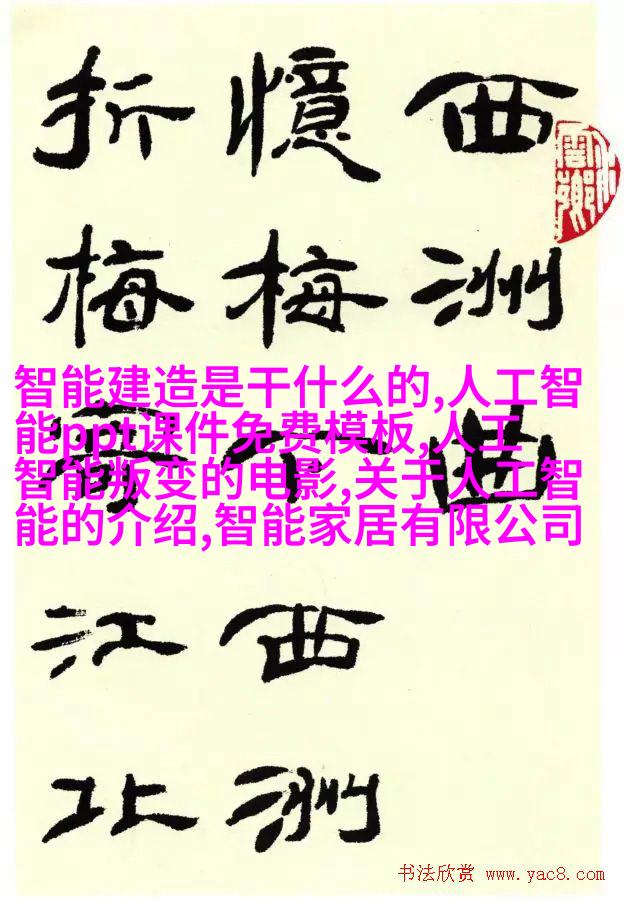 西洲曲
憶梅下西洲
折梅寄江北
智能建造是干什么的,人工智
能ppt课件免费模板,人工
智能叛变的电影,关于人工智
能的介绍,智能家居有限公司
书法欣赏 www.yac8.com